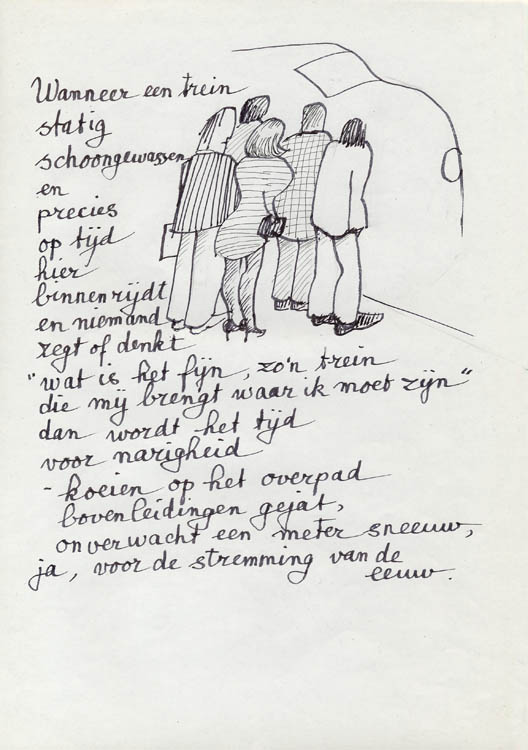 Wanneer een trein
statig
schoongewassen
en
precies
op tijd
hier
binnenrijdt
en niemand
zegt of denkt
"wat is het fijn, zo'n trein
die mij brengt waar ik moet zijn"
dan wordt het tijd
voor narigheid
- koeien op het overpad
bovenleidingen gejat,
onverwacht een meter sneeuw,
ja, voor de stremming van de
eeuw.